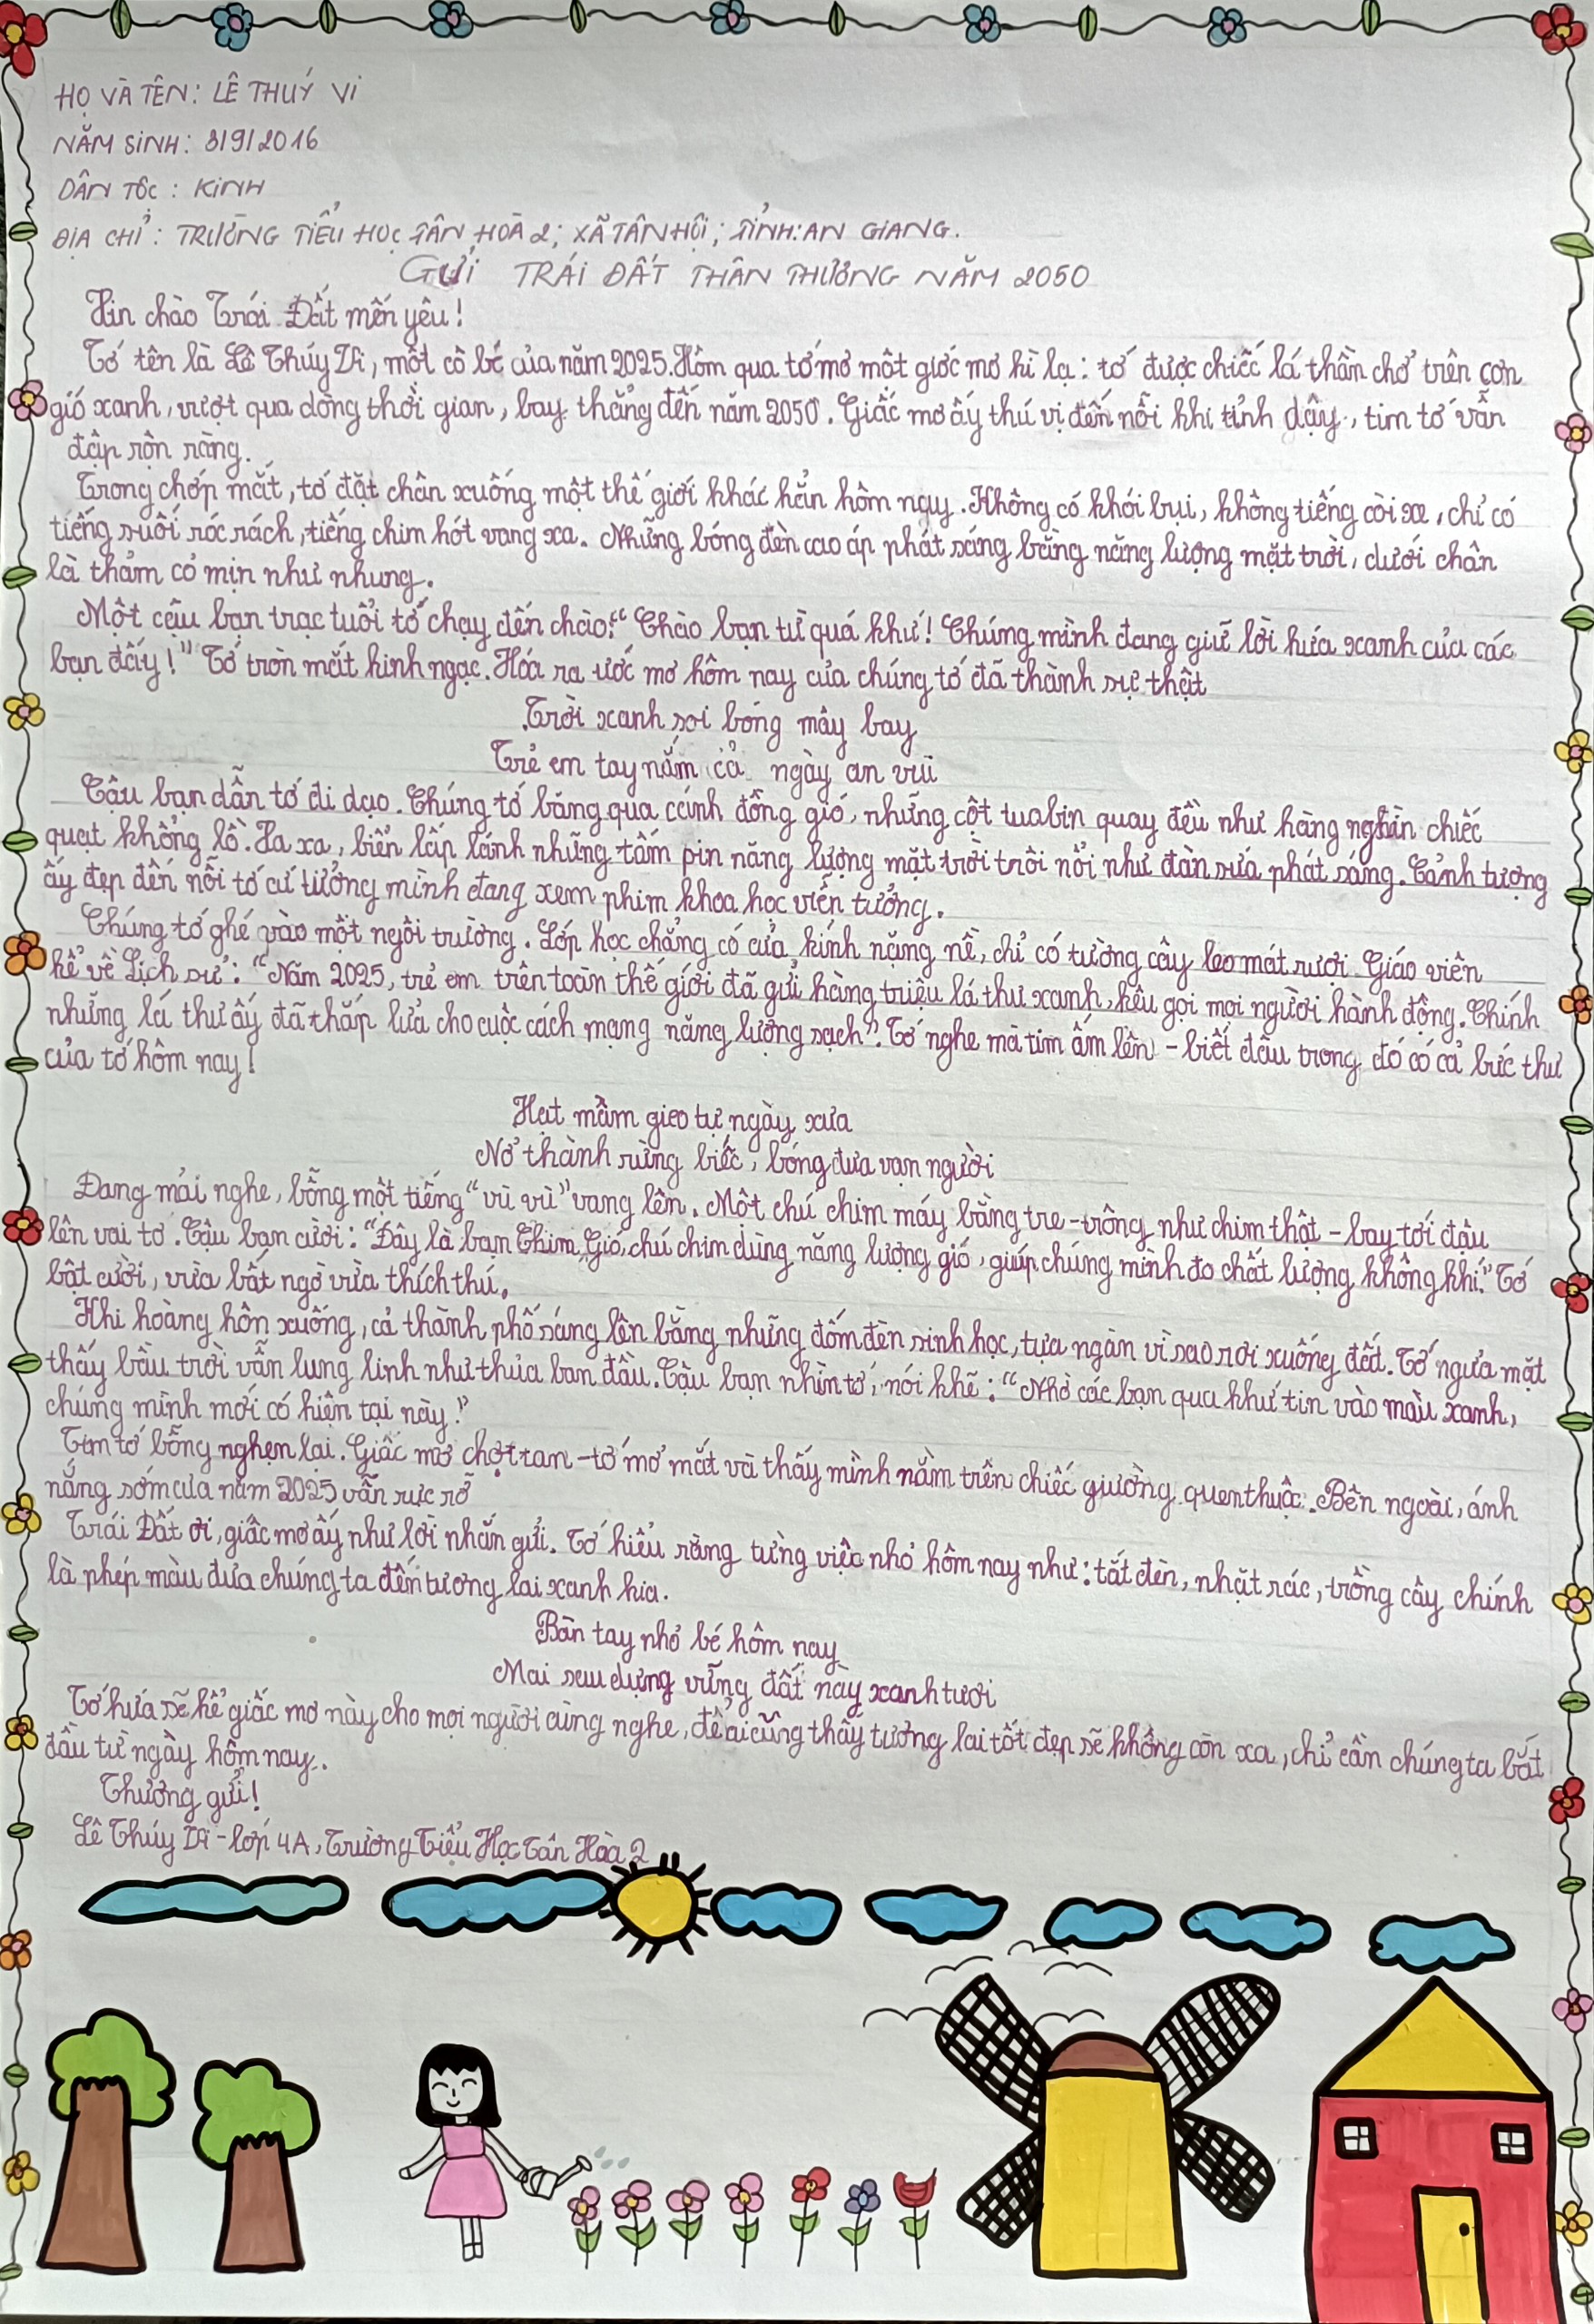 HỌ VÀ TÊN: LÊ THUÝ Vi
NĂM SiNH: 3/9/2016
DÂN TỘC : KiNH
ĐỊA CHỈ: TRƯỜNG TIỂU HỌC TÂN HOÀ 2; XÃ TÂN HỘi; TỈNH: AN GiANG.
GỬi TRÁI ĐẤT THÂN THƯƠNG NĂM 2050
Xin chào Trái Đất mến yêu!
Tớ tên là Lê Thúy Vi, một cô bé của năm 2025. Hôm qua tớ mơ một giấc mơ kì lạ: tớ được chiếc lá thần chở trên cơn
gió xanh, vượt qua dòng thời gian, bay thẳng đến năm 2050. Giấc mơ ấy thú vị đến nỗi khi tỉnh dậy, tim tớ vẫn
đập rộn ràng.
Trong chớp mắt, tớ đặt chân xuống một thế giới khác hẳn hôm nay. Không có khói bụi, không tiếng còi xe, chỉ có
tiếng suối róc rách, tiếng chim hót vang xa. Những bóng đèn cao áp phát sáng bằng năng lượng mặt trời, dưới chân
là thảm cỏ mịn như nhung.
Một cậu bạn trạc tuổi tớ chạy đến chào: "Chào bạn từ quá khứ! Chúng mình đang giữ lời hứa xanh của các
bạn đấy!" Tớ tròn mắt kinh ngạc. Hóa ra ước mơ hôm nay của chúng tớ đã thành sự thật
Trời xanh soi bóng mây bay
Trẻ em tay nắm cả ngày an vui
Cậu bạn dẫn tớ đi dạo. Chúng tớ băng qua cánh đồng gió, những cột tuabin quay đều như hàng nghìn chiếc
quạt khổng lồ. Xa xa, biển lấp lánh những tấm pin năng lượng mặt trời trôi nổi như đàn sứa phát sáng. Cảnh tượng
ấy đẹp đến nỗi tớ cứ tưởng mình đang xem phim khoa học viễn tưởng.
Chúng tớ ghé vào một ngôi trường. Lớp học chẳng có cửa kính nặng nề, chỉ có tường cây leo mát rượi. Giáo viên
kể về Lịch sử: "Năm 2025, trẻ em trên toàn thế giới đã gửi hàng triệu lá thư xanh, kêu gọi mọi người hành động. Chính
những lá thư ấy đã thắp lửa cho cuộc cách mạng năng lượng sạch". Tớ nghe mà tim ấm lên - biết đâu trong đó có cả bức thư
của tớ hôm nay!
Hạt mầm gieo tự ngày xưa
Nở thành rừng biếc, bóng đưa vạn người
Đang mải nghe, bỗng một tiếng "vù vù" vang lên. Một chú chim máy bằng tre - trông như chim thật - bay tới đậu
lên vai tớ. Cậu bạn cười: "Đây là bạn Chim Gió, chú chim dùng năng lượng gió, giúp chúng mình đo chất lượng không khí." Tớ
bật cười, vừa bất ngờ vừa thích thú.
Khi hoàng hôn xuống, cả thành phố sáng lên bằng những đốm đèn sinh học, tựa ngàn vì sao rơi xuống đất. Tớ ngửa mặt
thấy bầu trời vẫn lung linh như thủa ban đầu. Cậu bạn nhìn tớ, nói khẽ: "Nhờ các bạn quá khứ tin vào màu xanh,
chúng mình mới có hiện tại này."
Tim tớ bỗng nghẹn lại. Giấc mơ chợt tan - tớ mở mắt và thấy mình nằm trên chiếc giường quen thuộc. Bên ngoài, ánh
nắng sớm của năm 2025 vẫn rực rỡ
Trái Đất ơi, giấc mơ ấy như lời nhắn gửi. Tớ hiểu rằng từng việc nhỏ hôm nay như: tắt đèn, nhặt rác, trồng cây chính
là phép màu đưa chúng ta đến tương lai xanh kia.
Bàn tay nhỏ bé hôm nay
Mai sau dựng vững đất này xanh tươi
Tớ hứa sẽ kể giấc mơ này cho mọi người cùng nghe, để ai cũng thấy tương lai tốt đẹp sẽ không còn xa, chỉ cần chúng ta bắt
đầu từ ngày hôm nay.
Thương gửi!
Lê Thúy Vi - lớp 4A, Trường Tiểu Học Tân Hòa 2